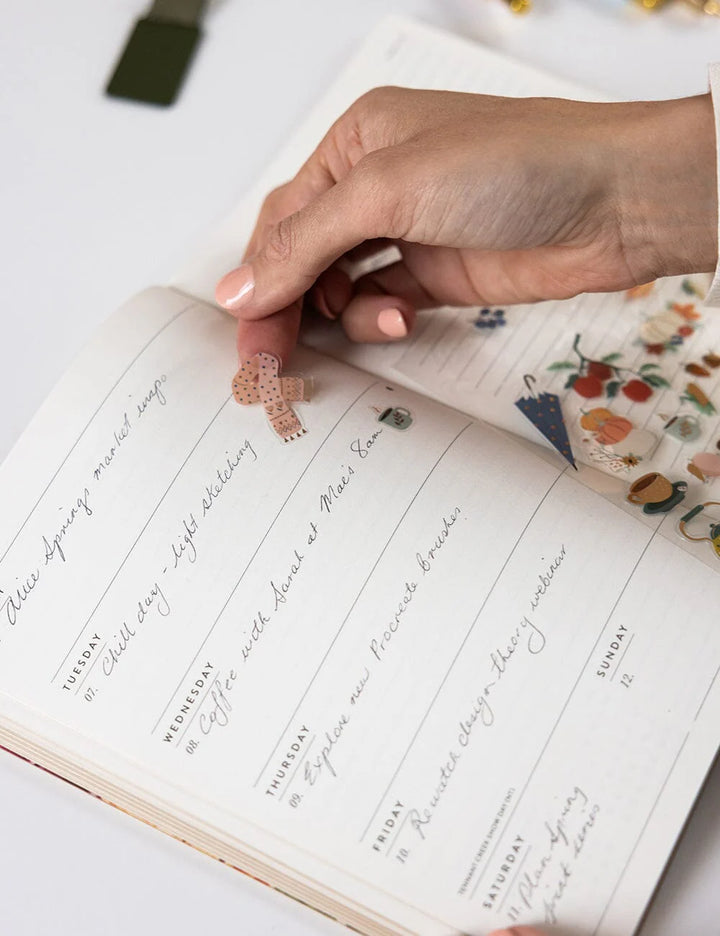 Alice Springs market wrap
TUESDAY
07. Chill day - light sketching
WEDNESDAY
08. Coffee with Sarah at Mae's 8am
THURSDAY
09. Explore new Procreate brushes.
FRIDAY
10. Rewatch design theory webinar
TENNANT CREEK SHOW DAY (NT)
SATURDAY
11. Plan Spring
print series
SUNDAY
12.